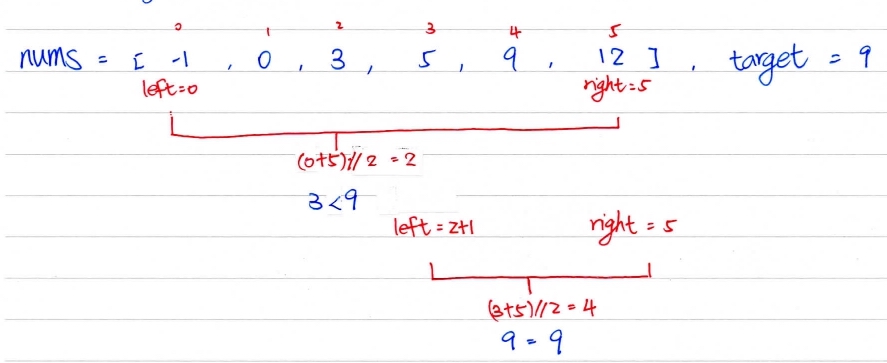 0 1 2 3 4 5
nums = [ -1 , 0 , 3 , 5 , 9 , 12 ] , target = 9
left=0 right=5
(0+5)//2 = 2
3<9
left = 2+1 right = 5
(3+5)//2 = 4
9 = 9